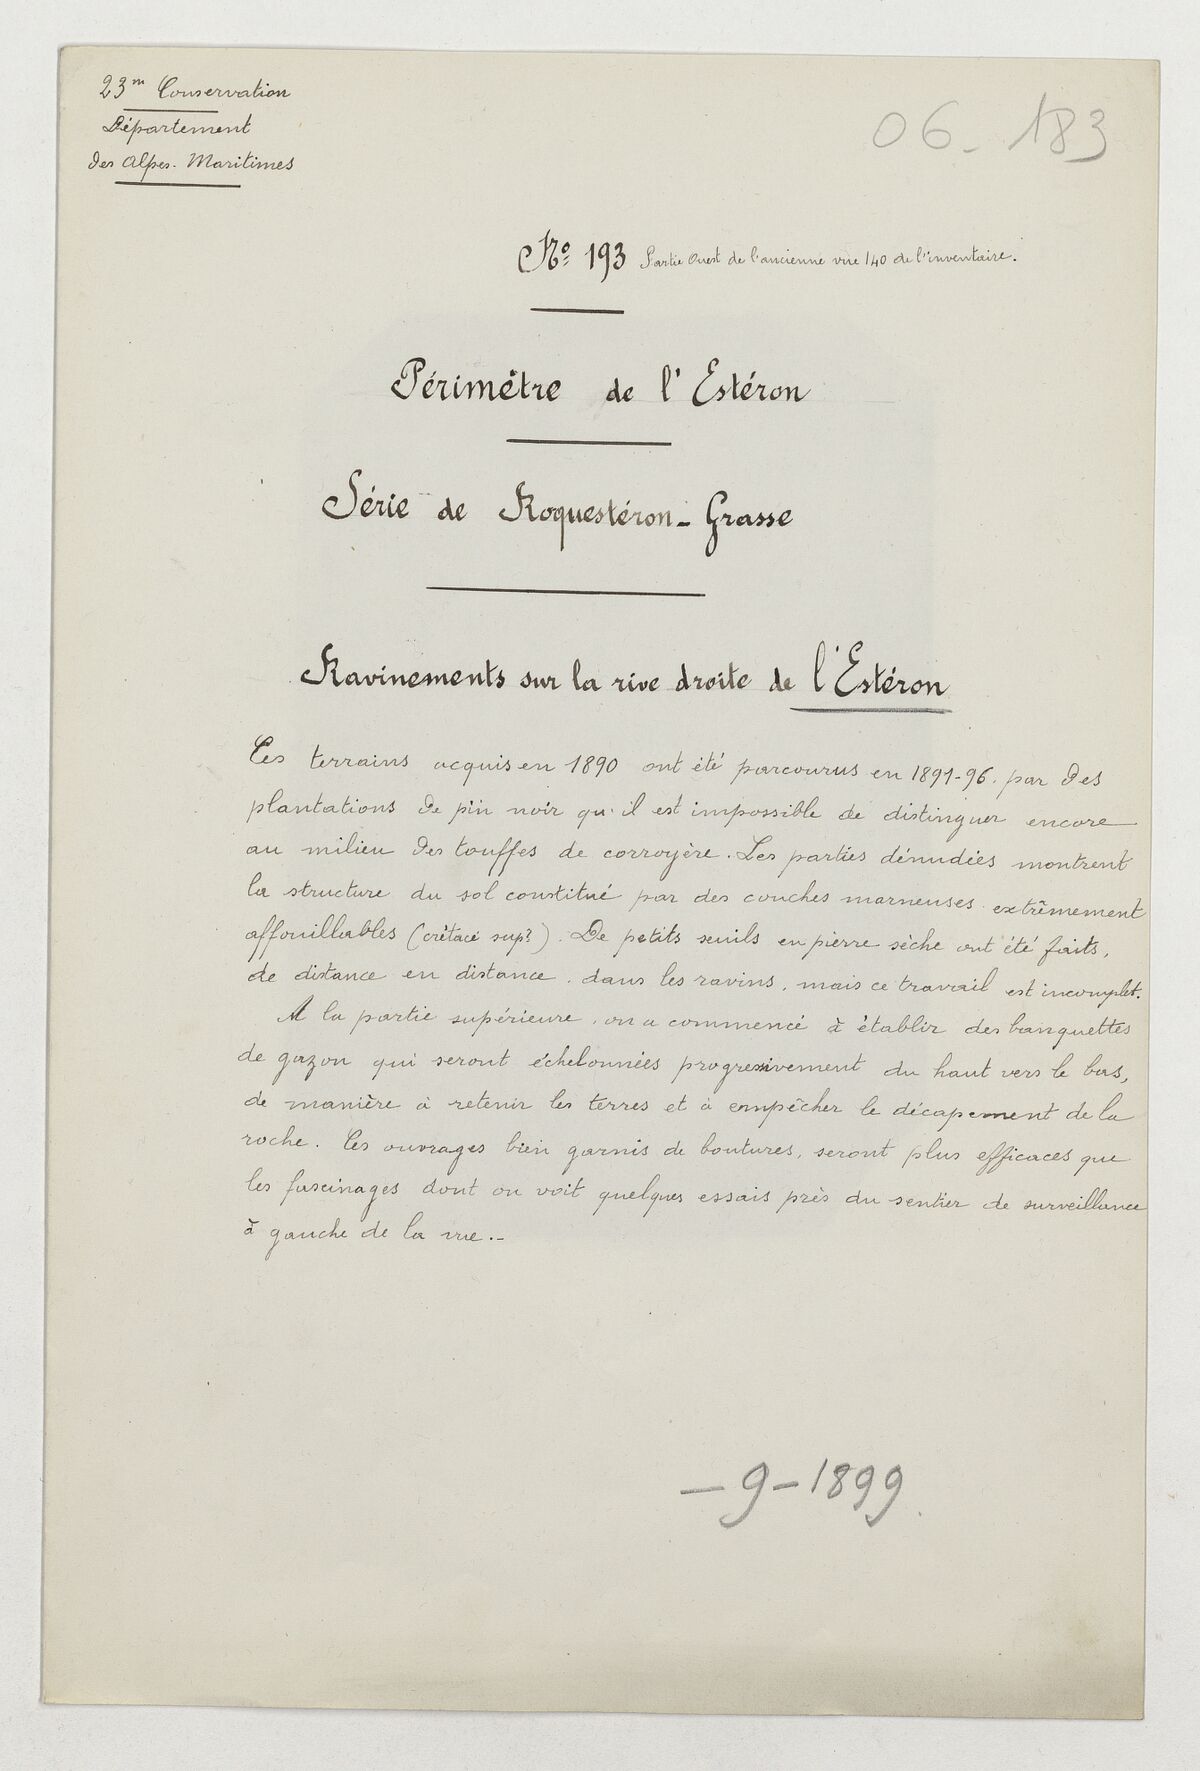 23me Conservation
Département
des Alpes-Maritimes
06 - 183
No 193 Partie Ouest de l'ancienne vue 140 de l'inventaire.
Périmètre de l'Estéron
Série de Roquestéron-Grasse
Ravinements sur la rive droite de l'Estéron
Ces terrains acquis en 1890 ont été parcourus en 1891-96, par des
plantations de pin noir qu'il est impossible de distinguer encore
au milieu des touffes de corroyère. Les parties dénudées montrent
la structure du sol constitué par des couches marneuses extrêmement
affouillables (crétacé supr). De petits seuils en pierre sèche ont été faits,
de distance en distance, dans les ravins, mais ce travail est incomplet.
A la partie supérieure, on a commencé à établir des banquettes
de gazon qui seront échelonnées progressivement du haut vers le bas,
de manière à retenir les terres et à empêcher le décapement de la
roche. Ces ouvrages bien garnis de boutures, seront plus efficaces que
les fascinages dont on voit quelques essais près du sentier de surveillance
à gauche de la vue.-
- 9 - 1899